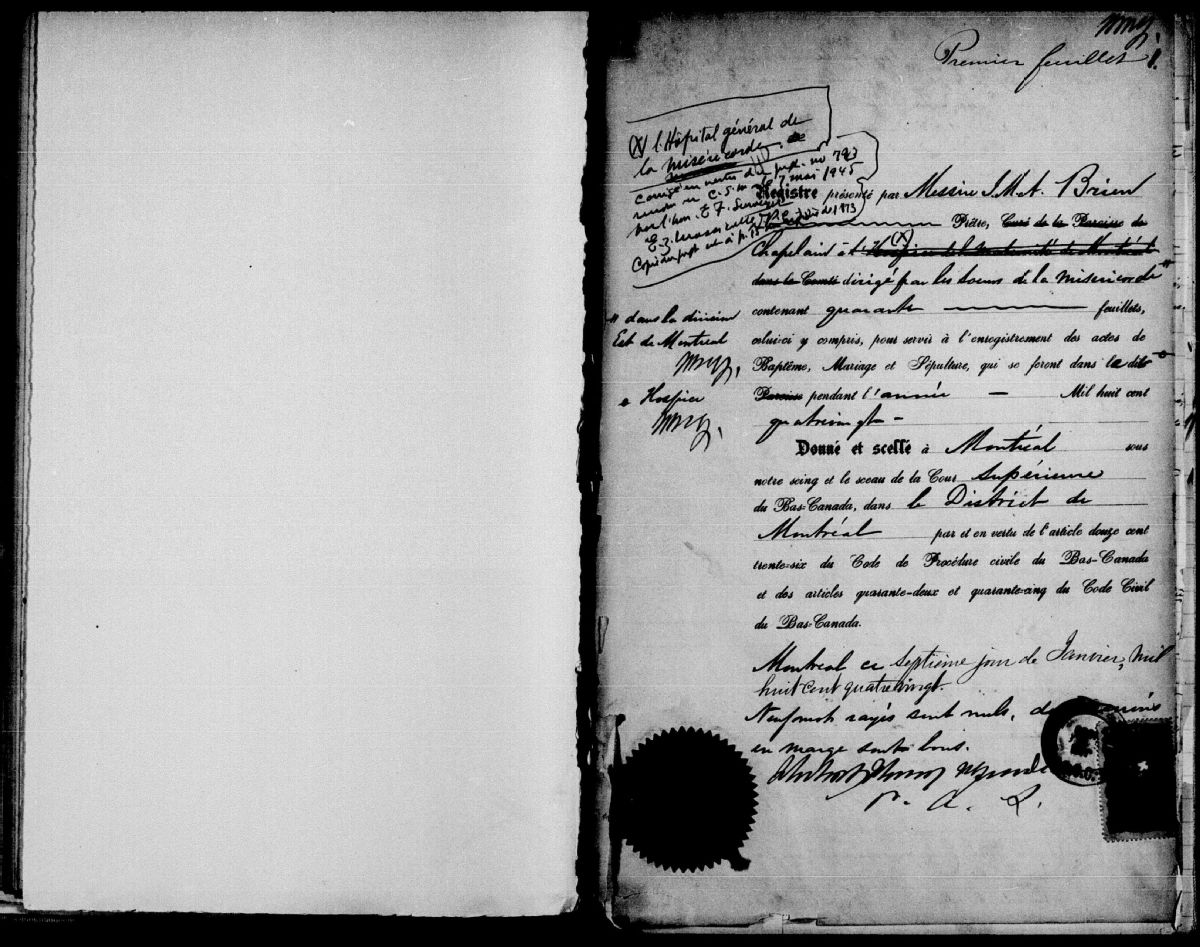 Premier feuillet 1.
(X) l'Hôpital général de
la miséricorde.
corrigé en vertu du jugt. no 793
rendu en C.S.M. 7 mai 1945
par l'hon. E. F. Surveyer
Copie du jugt est à p. de 1873
Registre présenté par Messire J. M. A. Brien
Prêtre, Curé de la Paroisse de
Chapelain à l'Hospice de la Maternité de Montréal (X)
dans le Comté dirigé par les Soeurs de la Miséricorde "
contenant quarante feuillets,
" dans la division
Est de Montréal
celui-ci y compris, pour servir à l'enregistrement des actes de
Baptême, Mariage et Sépulture, qui se feront dans le dit
Hospice
Paroisse pendant l'année — Mil huit cent
quatrevingt -
Donné et scellé à Montréal sous
notre seing et le sceau de la Cour Supérieure
du Bas-Canada, dans le District de
Montréal par et en vertu de l'article douze cent
trente-six du Code de Procédure civile du Bas-Canada
et des articles quarante-deux et quarante-cinq du Code Civil
du Bas-Canada.
Montréal ce septième jour de Janvier, mil
huit cent quatrevingt.
Neuf mots rayés sont nuls,
en marge sont bons.